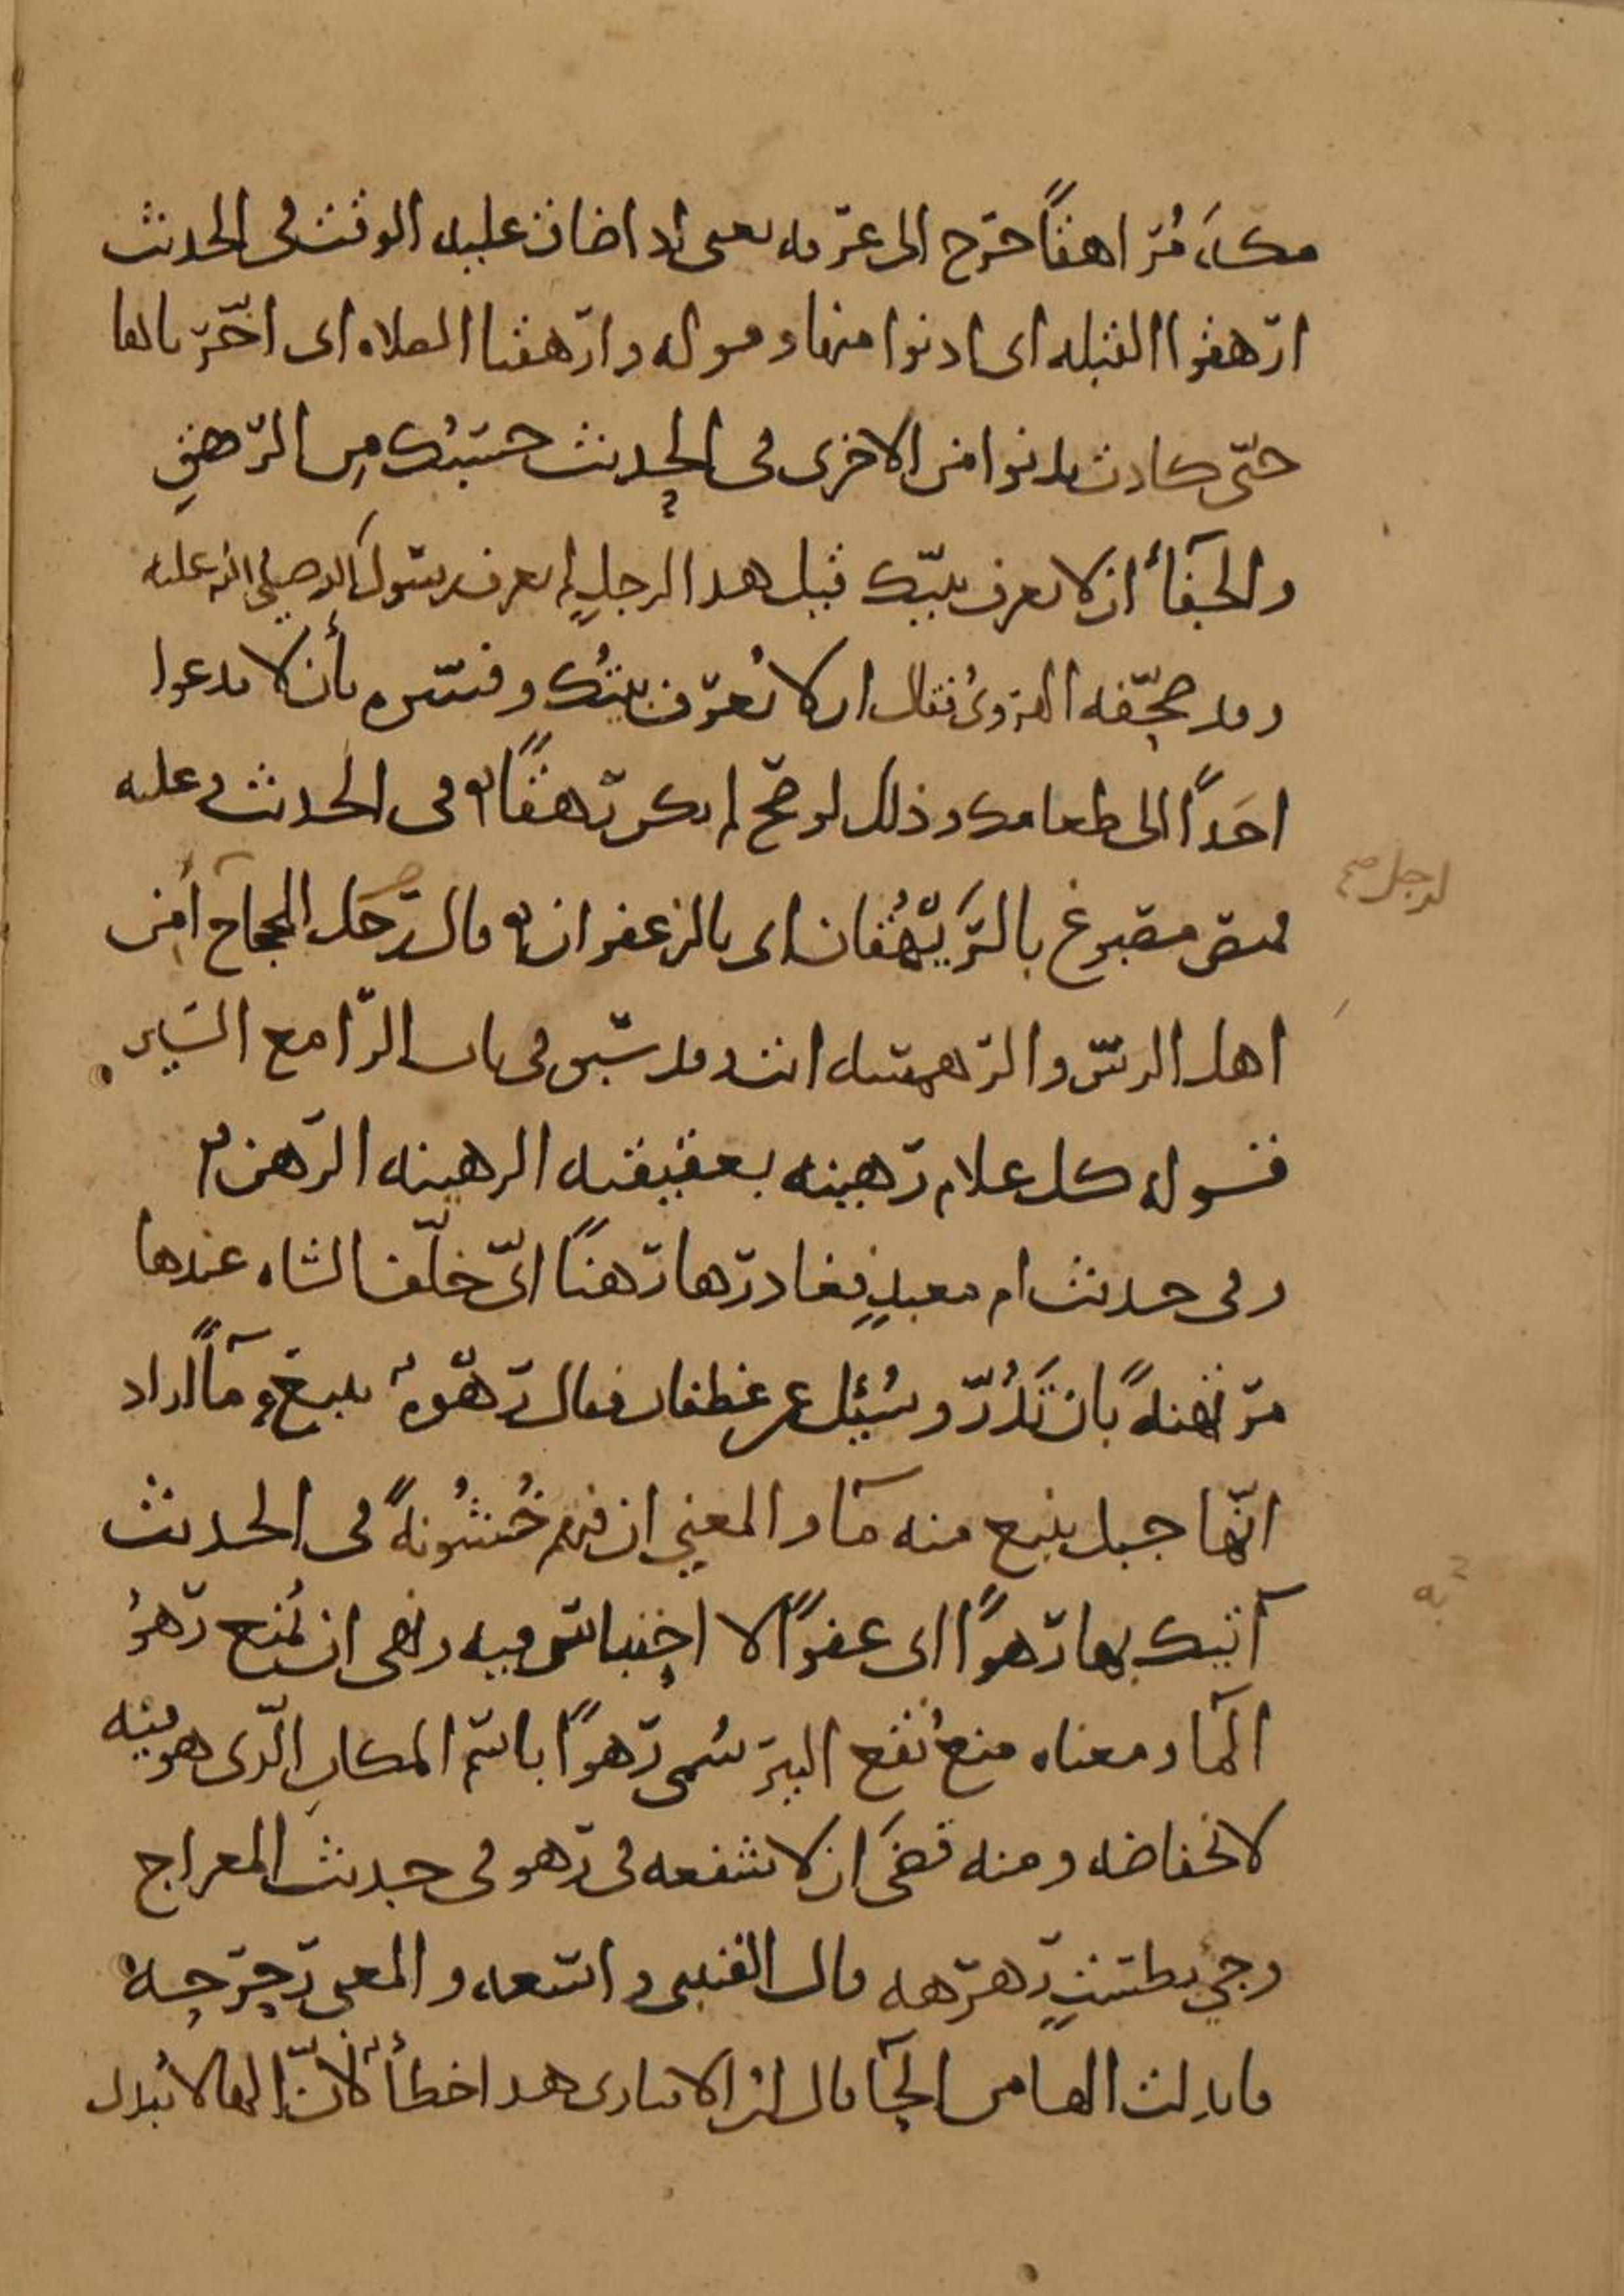 مكة مُراهقًا خرج الى عرفه يعنى اذا ضاق عليه الوقت فى الحديث
ارهقوا القبله اى ادنوا منها وقوله وارهقنا الصلاه اى اخّرناها
حتّى كادت تدنوا من الاخرى فى الحديث حسبُك مِن الرهقِ
والجفآء ان لا يعرف نبيّك قيل هذا الرجل لم يعرف رسول الله صلى الله عليه
وقد صحّفه الهروىُ فقال ان لا تُعرف بيتُك وفسّره بأن لا تدعوا
احَدًا الى طعامك وذلك لو صحّ لم يكن رهقًا فى الحديث وعليه
قميص مصبوغ بالرَّيْهُقان اى بالزعفران قال رجل الحجاج أمن
اهل الرسّ والرهمسه انت وقد سبق فى باب الرا مع السين
قوله كل غلام رهينه بعقيقته الرهينه الرهن
وفى حديث ام معبدٍ فغادرها رهنًا اىّ خلّف الشاه عندها
مرتهنةً بان تَدُرّ وسُئِل عن غطفان فقال رهْوةٌ تنبع مآءً اراد
انّها جبل ينبع منه مآ والمعني ان فيهم خُشُونةً فى الحديث
آتيك بها رهوًا اى عفوًا لا احتباس فيه ونهى ان يُمنع رهوُ
المآ ومعناه منع نقع البير سُمى رهوًا باسم المكان الّذى هو فيه
لانخفاضه ومنه قضَى ان لا شفعه فى رهو فى حديث المعراج
وجىء بطستٍ رهرهه قال القتبى واسعه والمعنى رحرحه
فابدلت الهامن الحآ قال ابن الانبارى هذا خطأ لأنّ الها لا تبدل
لرجل صح
به